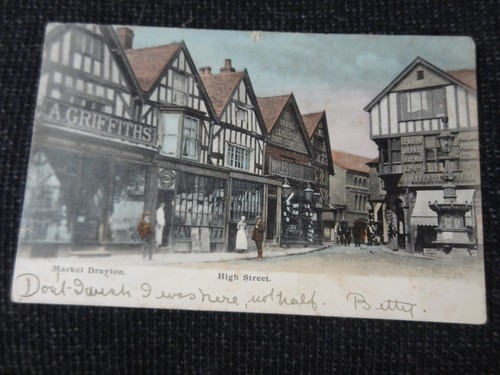 A GRIFFITHS
Market Drayton.
High Street.
Don't I wish I was here, not half. Betty.